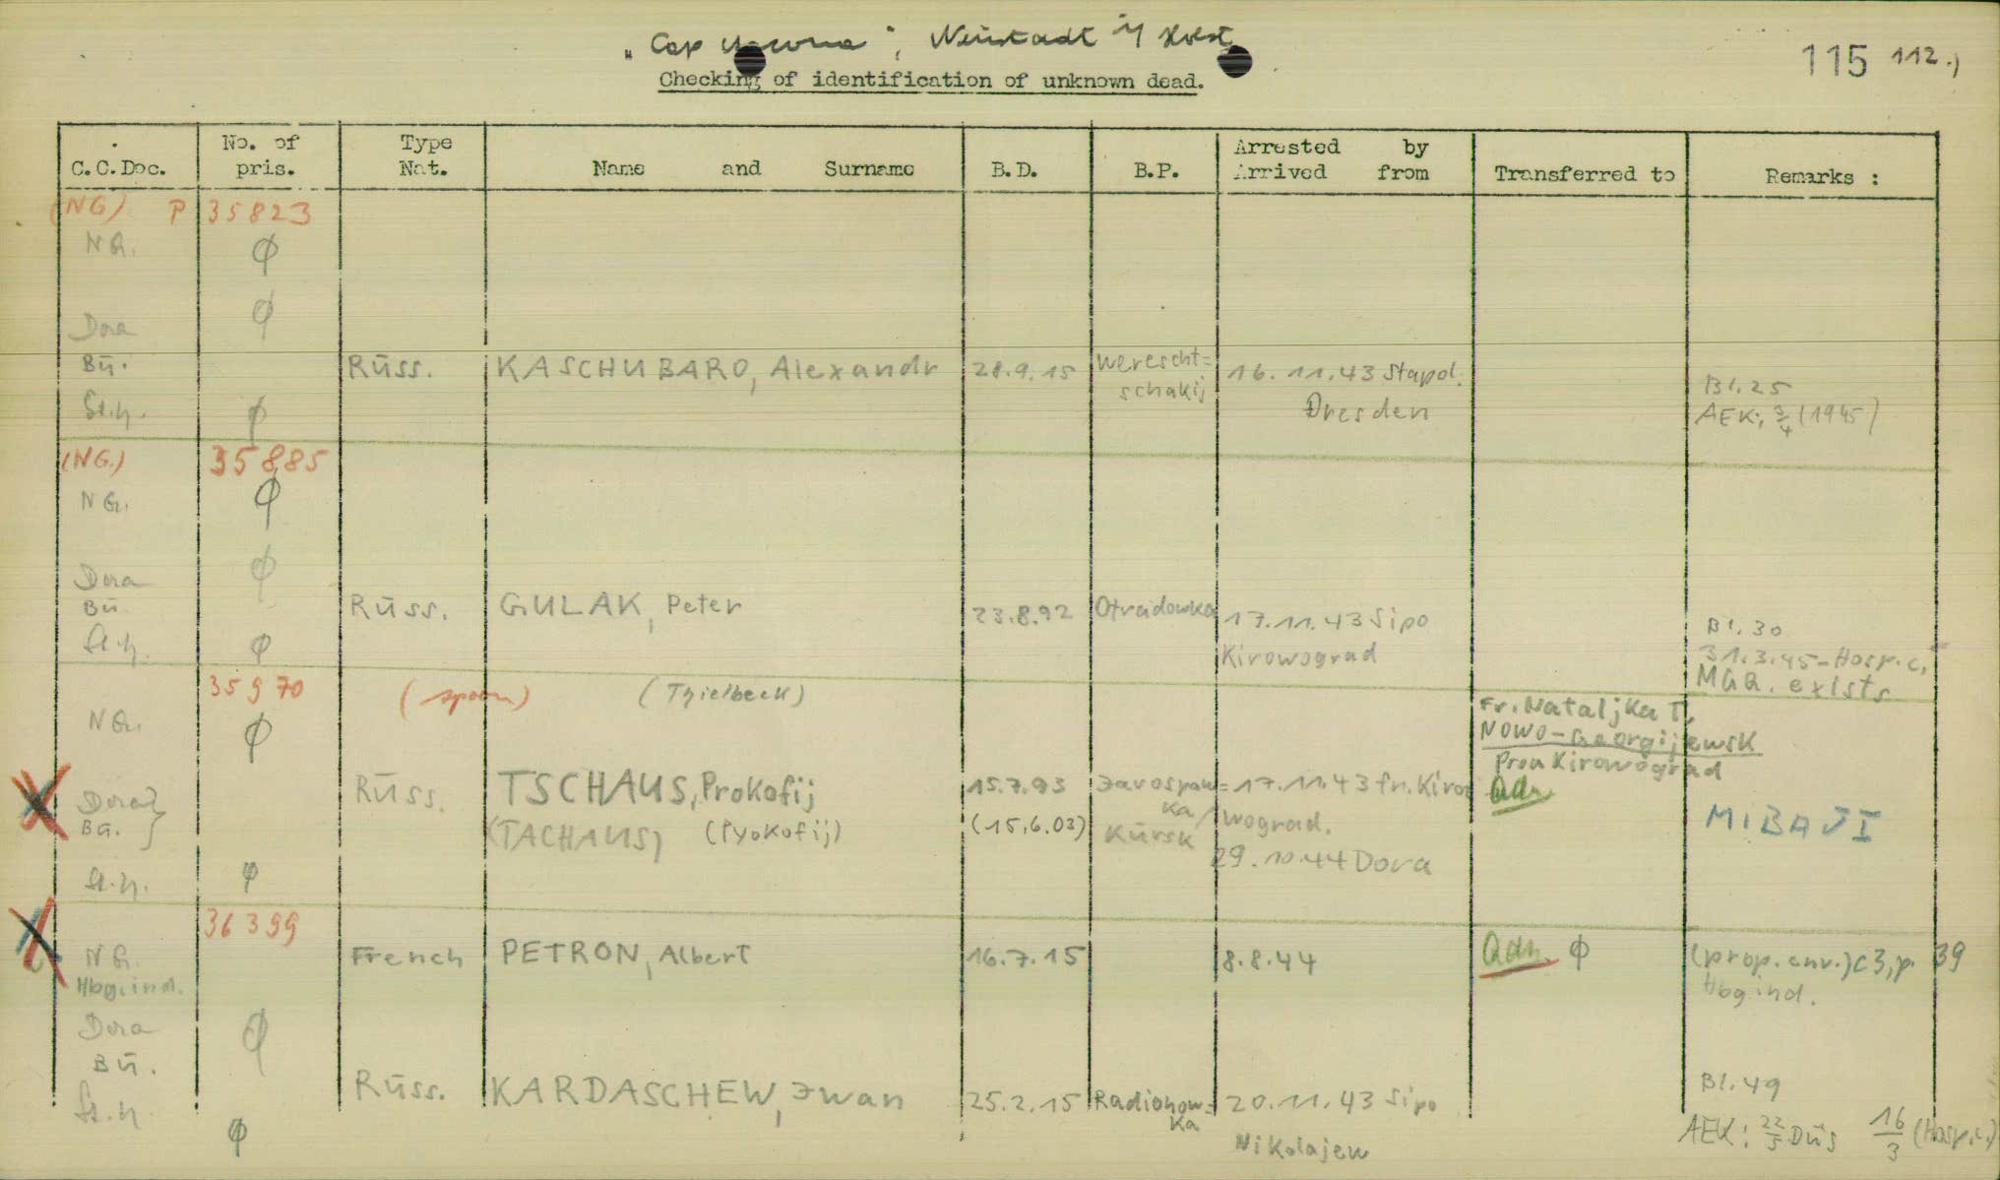 „Cap Arcona“, Neustadt i/ Holst
115 112.)
Checking of identification of unknown dead.
C.C.Doc. No. of pris. Type Nat. Name and Surname B.D. B.P. Arrested by Arrived from Transferred to Remarks :
(NG) P 35823
NG. ϕ
Dora ϕ
Bü. Russ. KASCHUBARO, Alexandr 28.9.15 Werescht=schakij 16.11.43 Stapol. Dresden Bl. 25
St.h. ϕ AEK; 3/4 (1945)
(NG.) 35885
NG. ϕ
Dora ϕ
Bü Russ. GULAK, Peter 23.8.92 Otradowka 17.11.43 Sipo Kirowograd Bl. 30
St.h. ϕ 31.3.45-Hosp.c, MGR. exists
35970 (spoon) (Thielbeck)
NG. ϕ Fr. Nataljka T,
NOWO-Georgijewsk
Prov Kirowograd
Dora} Russ. TSCHAUS, Prokofij 15.7.93 17.11.43 fr. Kiro=wograd. Adr
Bü. } (TACHAUS) (Pyokofij) (15.6.03) Kursk 29.10.44 Dora MIBAJI
St.h. ϕ
36399
NG. French PETRON, Albert 16.7.15 8.8.44 Adr. ϕ (prop.env.) C3, p. 39
Hbg.ind. Hbg ind.
Dora ϕ
Bü. Russ. KARDASCHEW, Iwan 25.2.15 Radionow=ka 20.11.43 Sipo Nikolajew Bl. 49
St.h ϕ AEK: 22/5 Düs 16/3 (Hosp.c.)